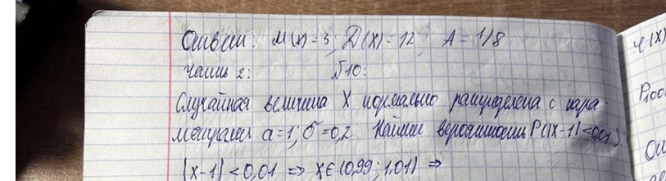 Ответ: M(x)=3, D(X)=12; A=1/8
Часть 2: №10:
Случайная величина X нормально распределена с пара-
метрами a=1, σ=0,2. Найти вероятность P(|X-1|<0,01).
|x-1|<0,01 => x∈(0,99; 1,01) =>
φ(X)